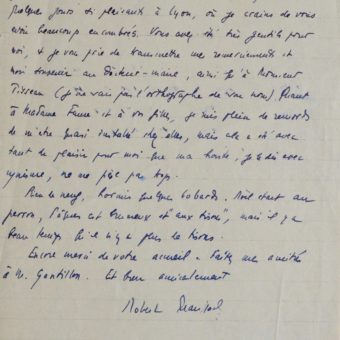 quelques jours si plaisants à Lyon, où je crains de vous
avoir beaucoup encombrés. Vous avez été très gentils pour
moi, et je vous prie de transmettre mes remerciements et
mon souvenir au Docteur-maire, ainsi qu'à Monsieur
(je ne sais pas l'orthographe de son nom) Quant
à Madame et à son fils, je suis plein de remords
de m'être quasi installé chez elles, mais cela a été avec
tant de plaisir pour moi que ma honte, je le dis avec
cynisme, ne me pèse pas trop.
Rien de neuf, hormis quelques bobards. Noël étant au
perron, Pâques est "aux tisons", mais il y a
beau temps qu'il n'y a plus de tisons.
Encore merci de votre accueil. Faites mes amitiés
à M. Gontillon. Et bien amicalement
Robert